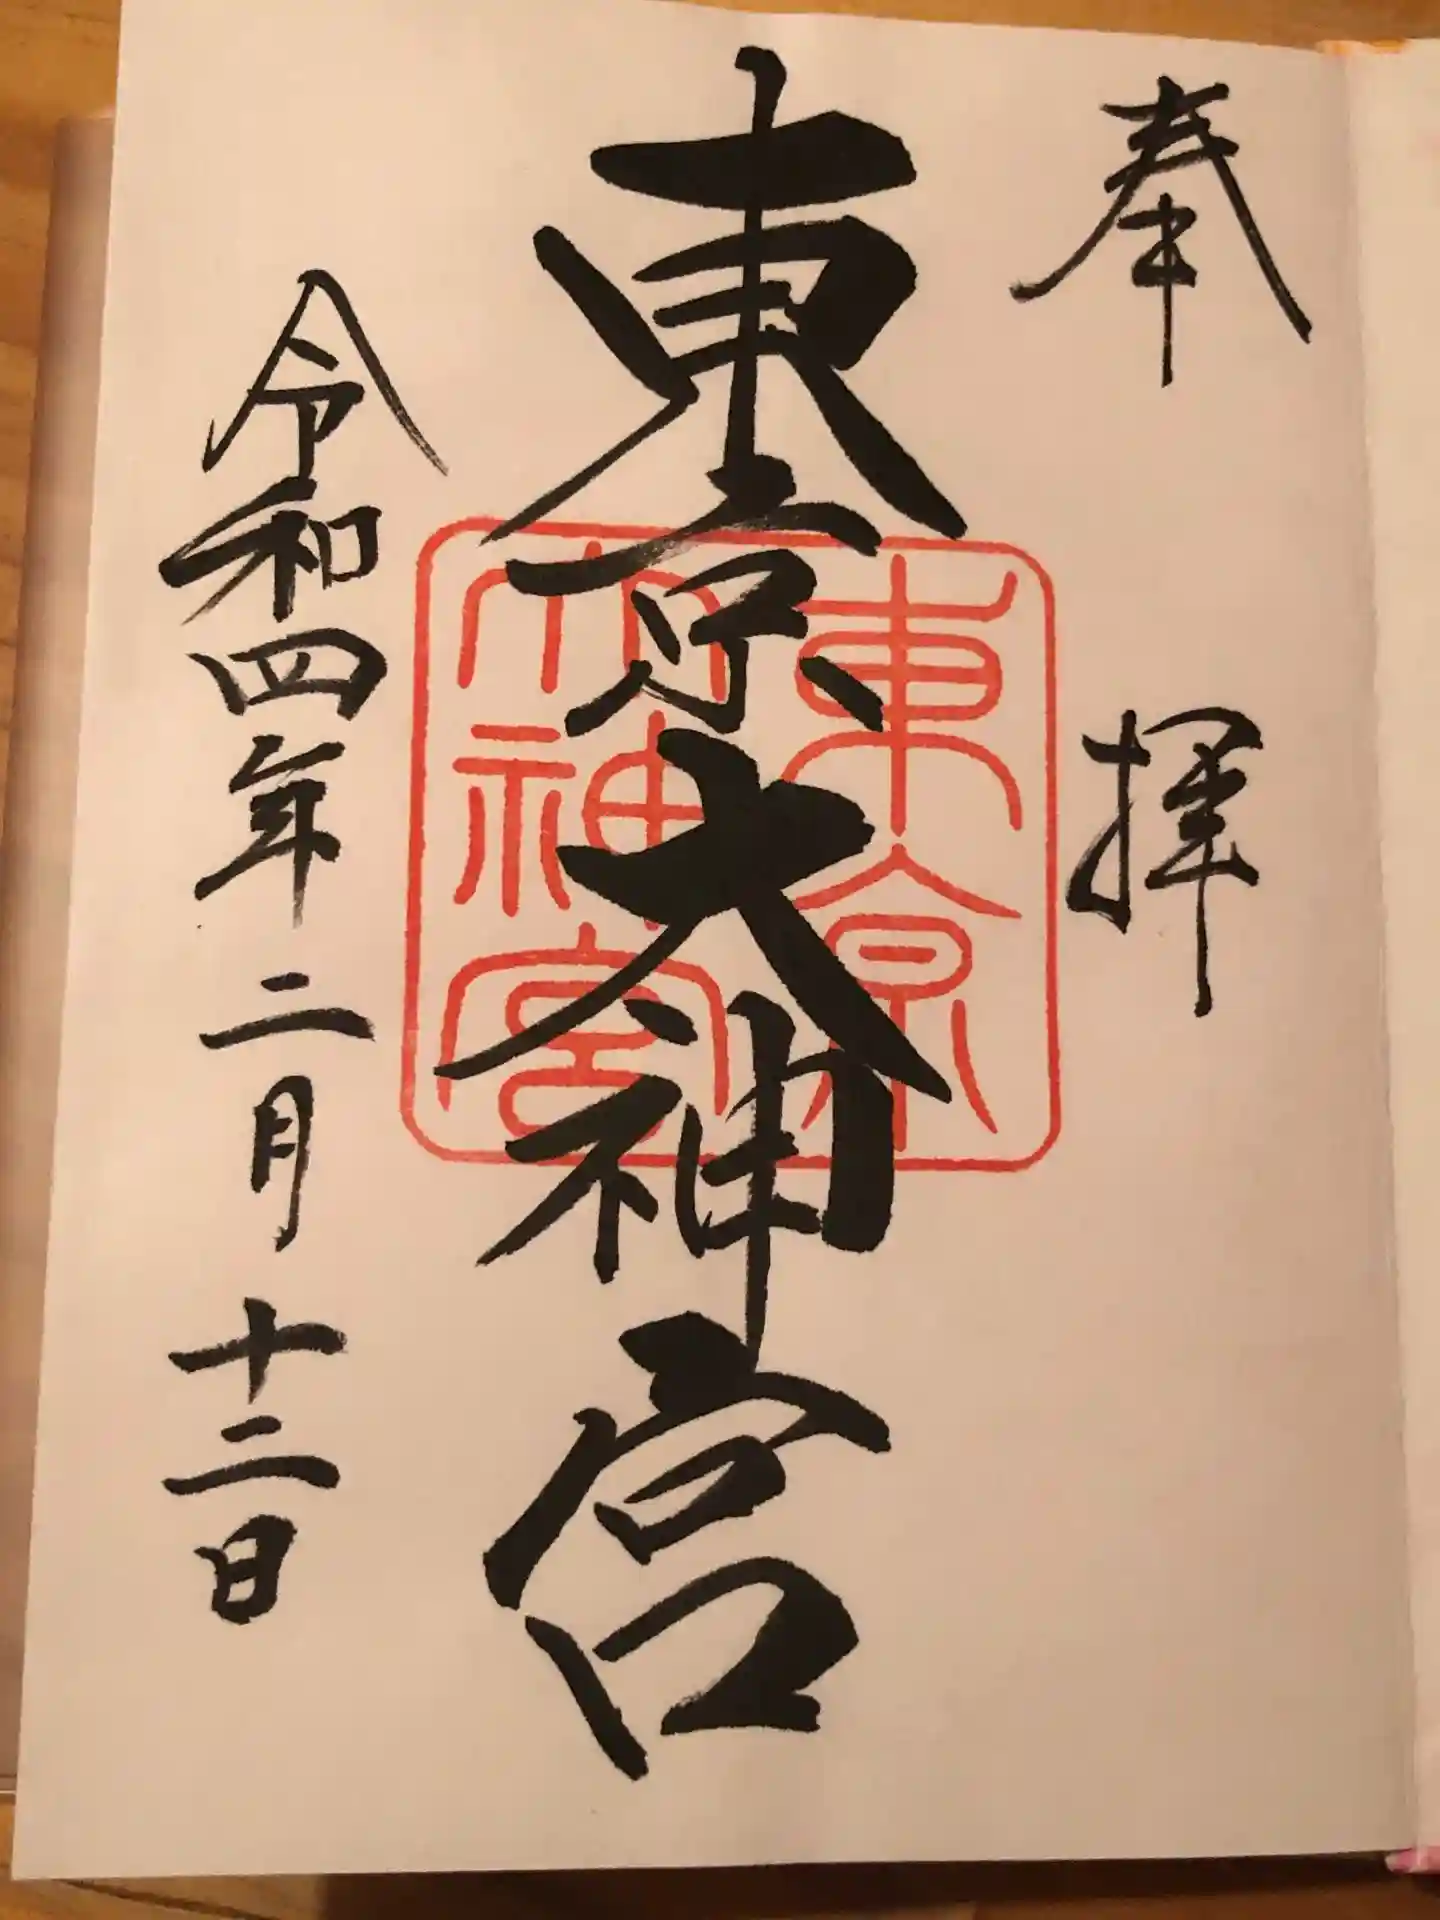 奉拝
東京大神宮
東京
大神宮
令和四年二月十二日